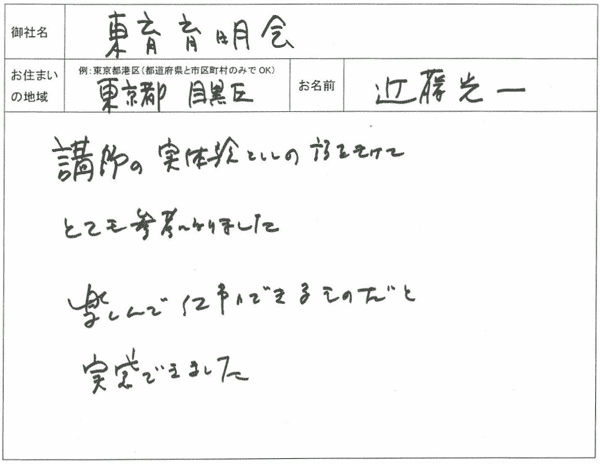 御社名 東育育明会
お住まいの地域 例:東京都港区(都道府県と市区町村のみでOK) 東京都 目黒区 お名前 近藤光一
講師の実体験としての話を
とても参考になりました
楽しんで仕事できるものだと
実感できました